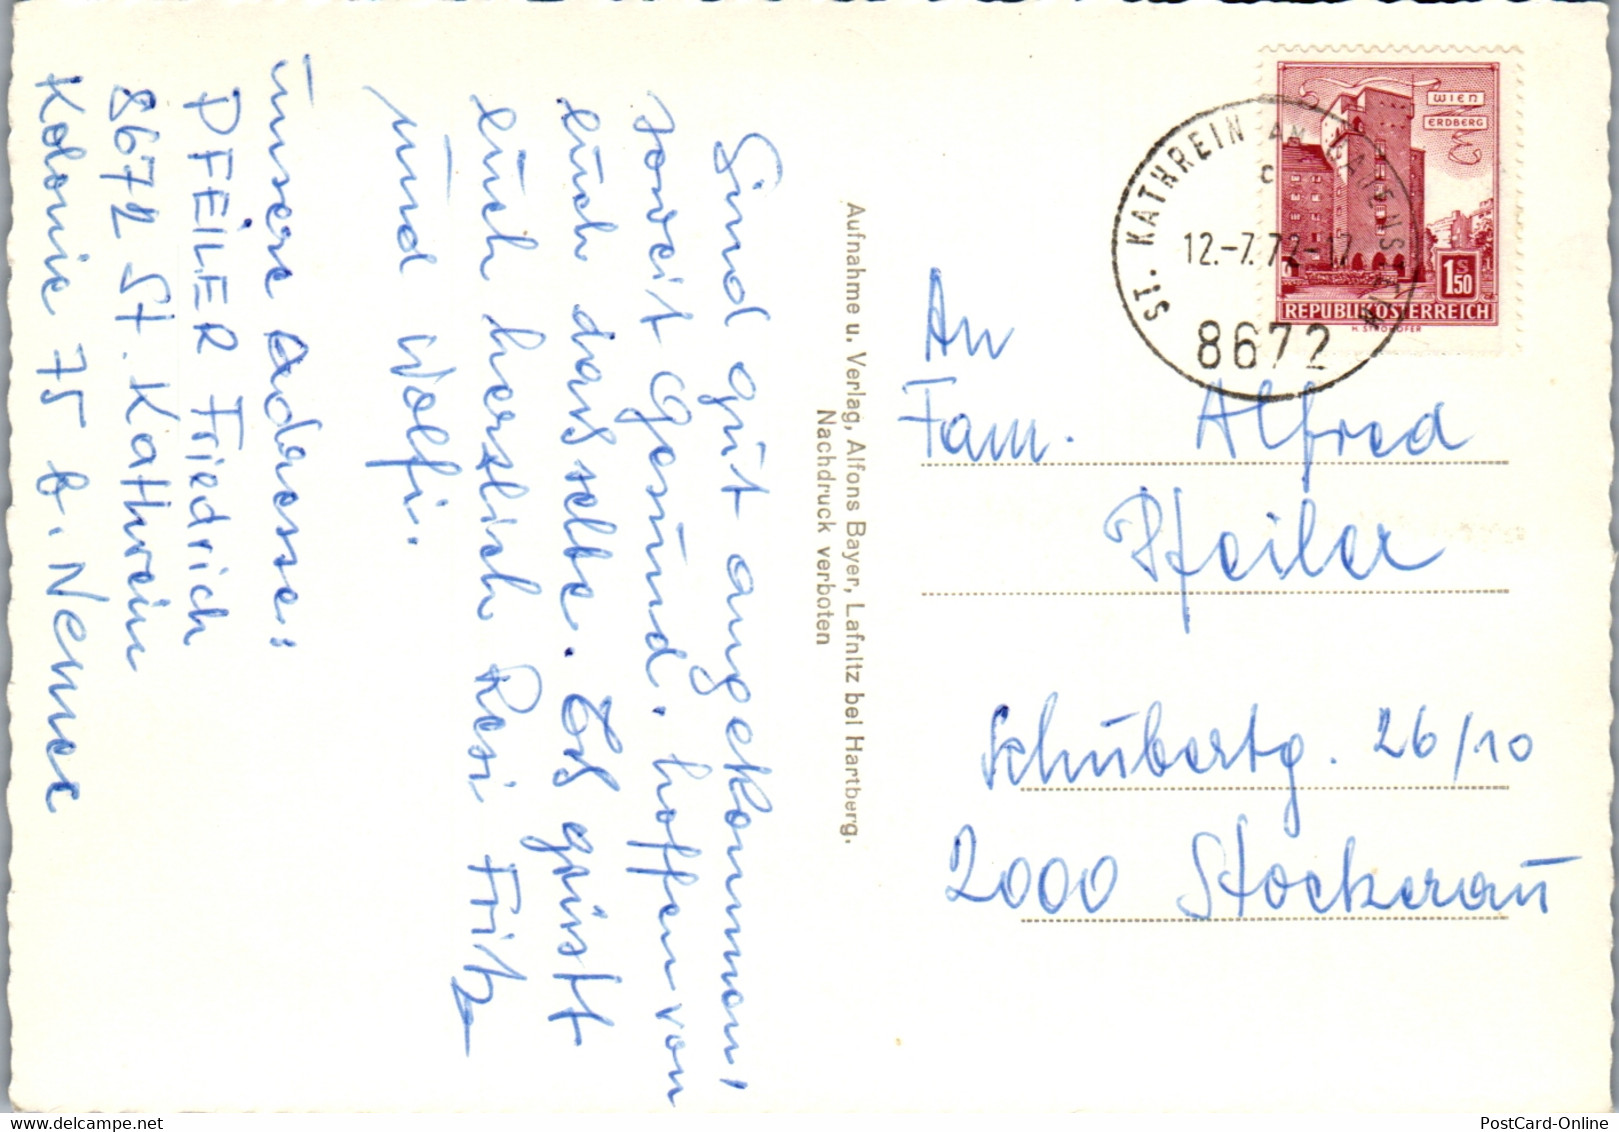 Sind gut angekommen,
soweit Gesund. hoffen von
euch dasselbe. Es grüsst
euch herzlich Resi Fritz
und Wolfi.
unsere Adresse:
PFEILER Friedrich
8672 St. Kathrein
Kolonie 75 b.
Aufnahme u. Verlag, Alfons Bayer, Lafnitz bei Hartberg.
Nachdruck verboten
WIEN
ERDBERG
1 S 50
REPUBLIK ÖSTERREICH
ST. KATHREIN AM
c
12.-7.72-17
8672
An
Fam. Alfred
Pfeiler
Schubertg. 26/10
2000 Stockerau
PostCard-Online